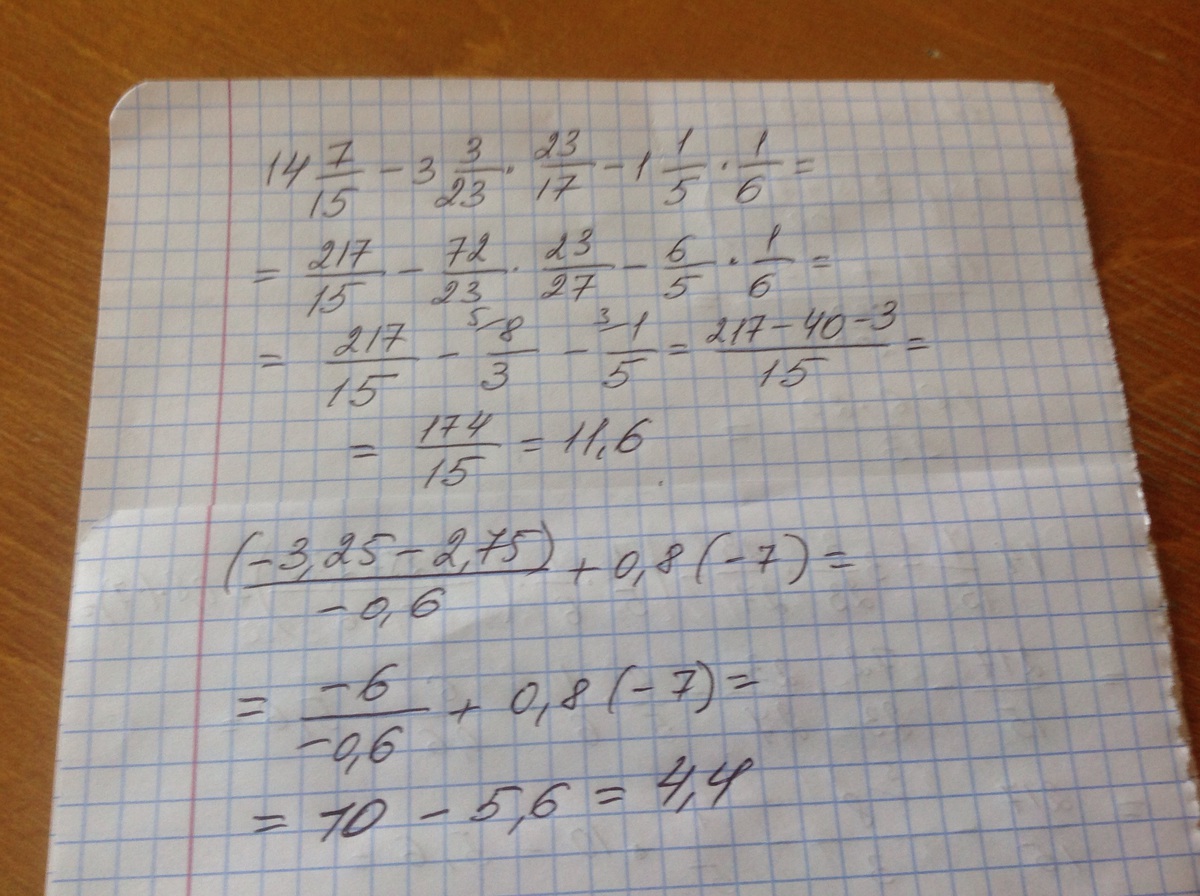 14 7/15 - 3 3/23 · 23/17 - 1 1/5 · 1/6 =
= 217/15 - 72/23 · 23/27 - 6/5 · 1/6 =
= 217/15 - 5⁄ 8/3 - 3⁄ 1/5 = 217-40-3/15 =
= 174/15 = 11,6
(-3,25-2,75)/-0,6 + 0,8(-7) =
= -6/-0,6 + 0,8(-7) =
= 10 - 5,6 = 4,4